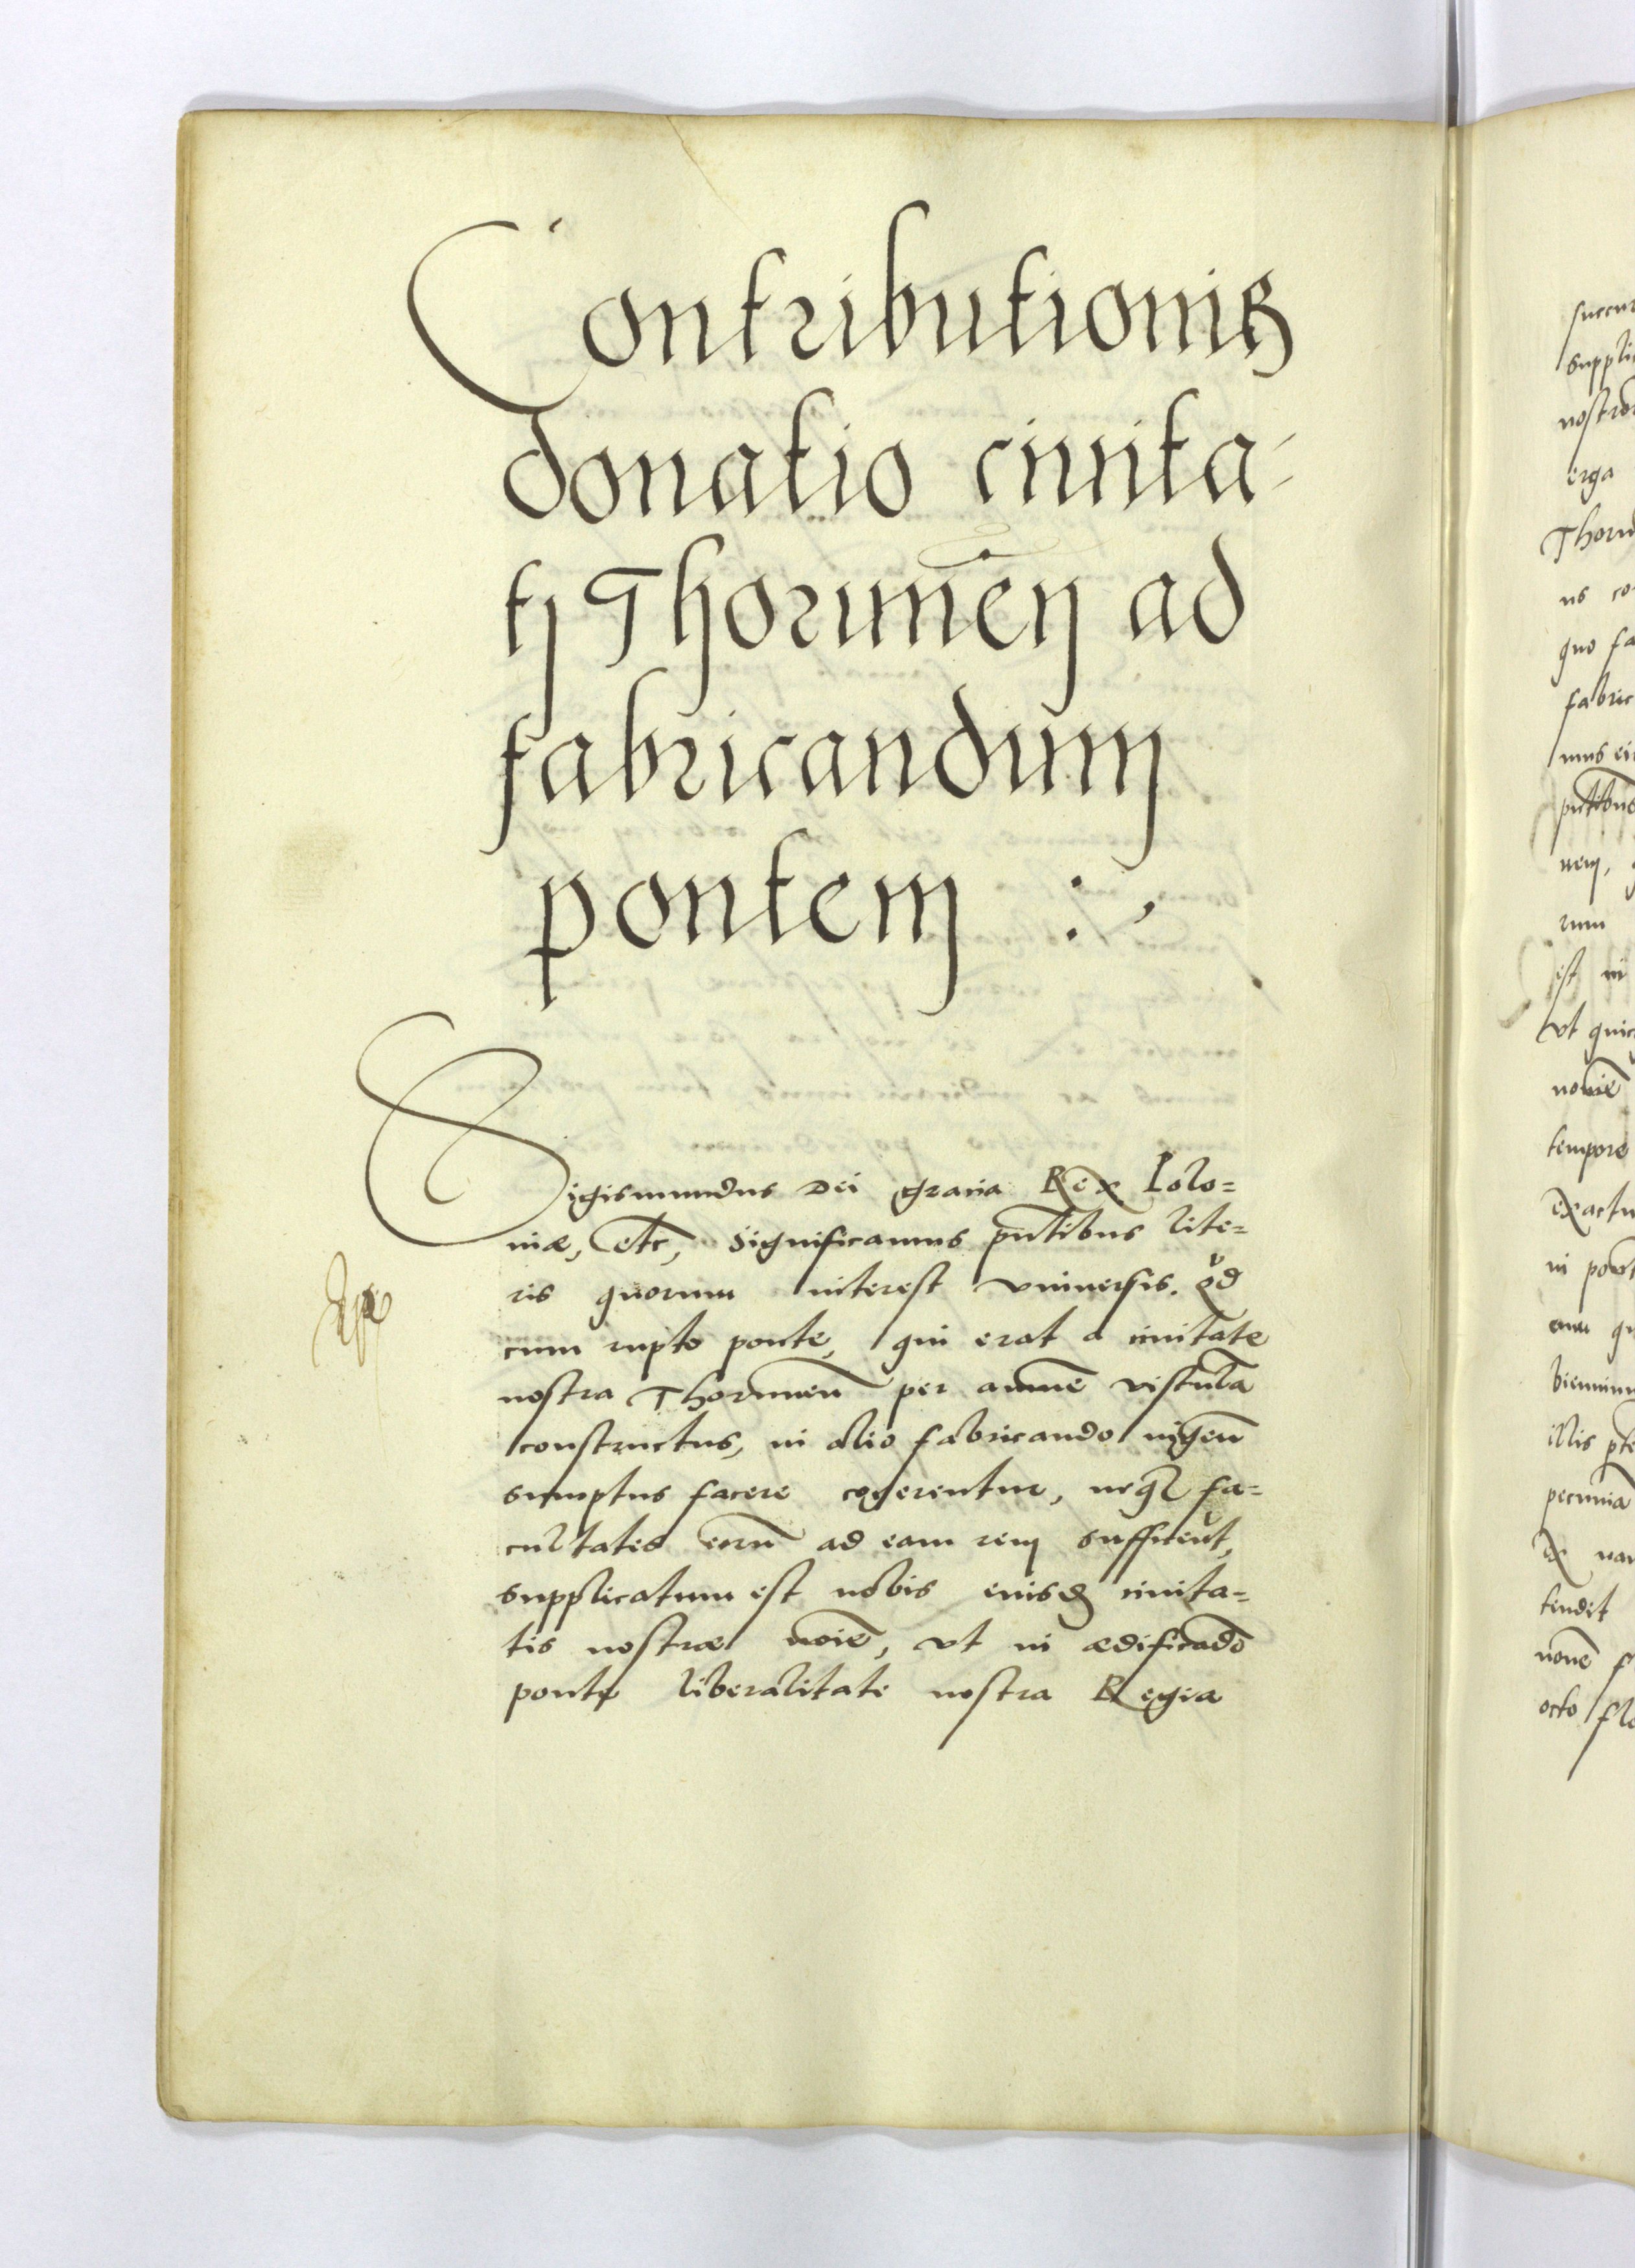 Contributionis
donatio ciuita-
tj Thorunen̄ ad
fabricandum
pontem :,
Sigismundus Dei gracia Rex Polo=
niæ, etc, Significamus pn̄tibus lite=
ris quorum interest vniuersis. qd
cum rupto ponte, qui erat a ciuitate
nostra Thorunen̄ per amnē vistulā
constructus, in alio fabricando ingen̄
sumptus facere cogerentur, neqꝫ fa=
cultates eorū ad eam rem sufficeūt,
supplicatum est nobis eiusdē ciuita=
tis nostræ noīe, vt in ædificādo
ponte liberalitate nostra Regia
succur
suppli
nostror
erga
Thoru
us co
quo fa
fabric
mus ei
pn̄tibus
nem,
rum
est in
vt quic
nouiē
tempore
exactu
in pont
bienniu
illis
pecuniā
tendit
nonē f
octo flo